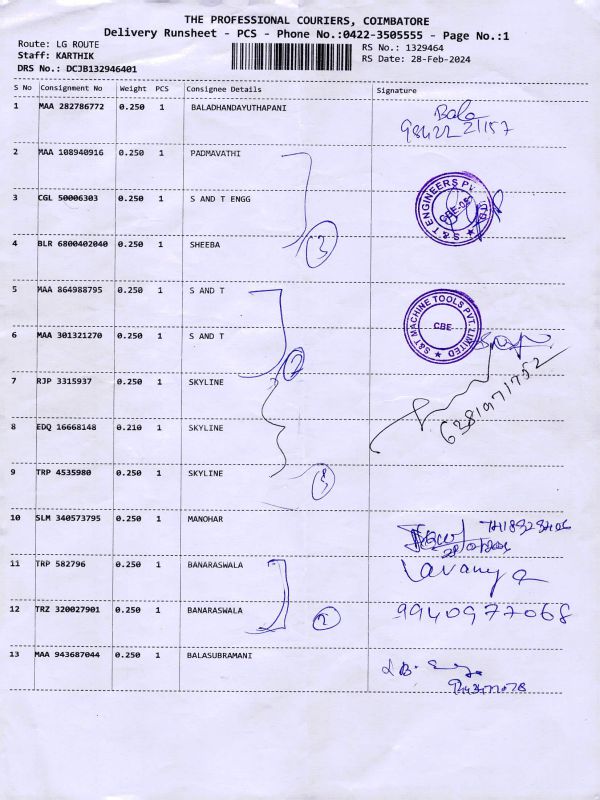 THE PROFESSIONAL COURIERS, COIMBATORE
Delivery Runsheet - PCS - Phone No.:0422-3505555 - Page No.:1
Route: LG ROUTE
Staff: KARTHIK
DRS No.: DCJB132946401
RS No.: 1329464
RS Date: 28-Feb-2024
S No Consignment No Weight PCS Consignee Details Signature
1 MAA 282786772 0.250 1 BALADHANDAYUTHAPANI
Bala
98422 21157
2 MAA 108940916 0.250 1 PADMAVATHI
3 CGL 50006303 0.250 1 S AND T ENGG
S&T ENGINEERS PVT. LTD. CBE
4 BLR 6800402040 0.250 1 SHEEBA
3
5 MAA 864988795 0.250 1 S AND T
S&T MACHINE TOOLS PVT. LIMITED CBE
6 MAA 301321270 0.250 1 S AND T
2
7 RJP 3315937 0.250 1 SKYLINE
6381971752
8 EDQ 16668148 0.210 1 SKYLINE
9 TRP 4535980 0.250 1 SKYLINE
3
10 SLM 340573795 0.250 1 MANOHAR
11 TRP 582796 0.250 1 BANARASWALA
Lavanya
12 TRZ 320027901 0.250 1 BANARASWALA
2
9940977068
13 MAA 943687044 0.250 1 BALASUBRAMANI